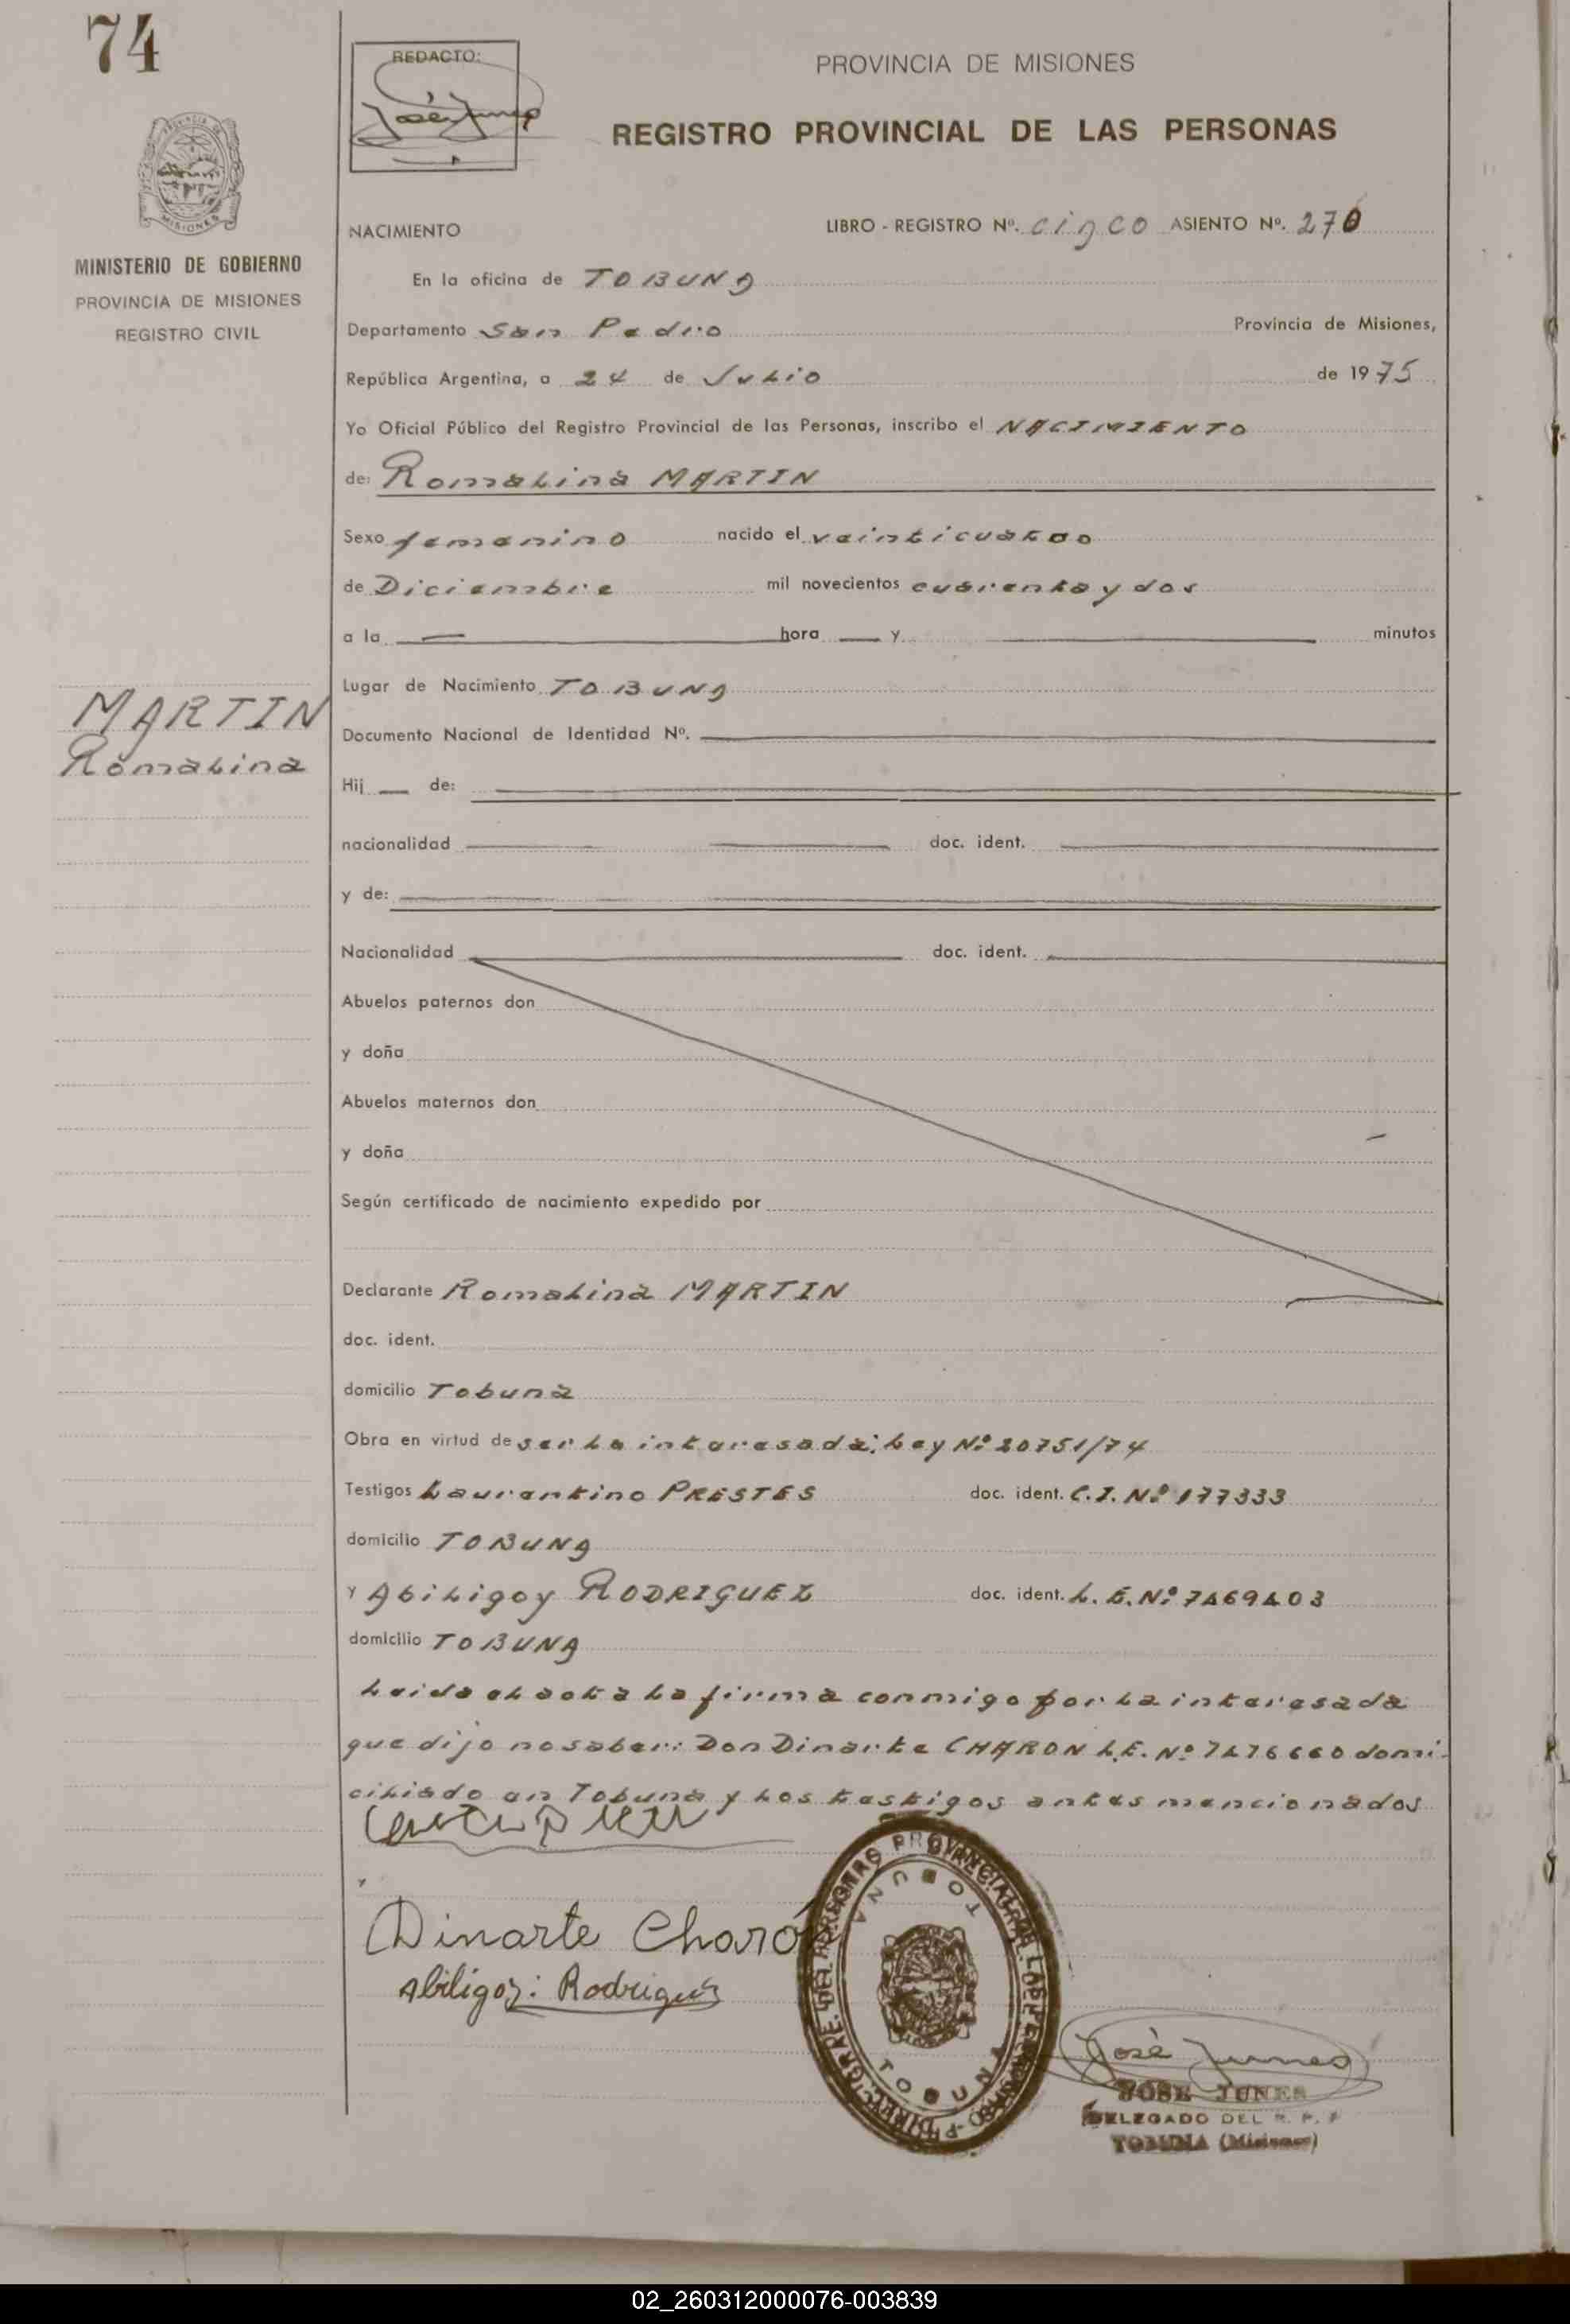 74
REDACTO:
José Junes
PROVINCIA DE MISIONES
REGISTRO PROVINCIAL DE LAS PERSONAS
MINISTERIO DE GOBIERNO
PROVINCIA DE MISIONES
REGISTRO CIVIL
NACIMIENTO LIBRO - REGISTRO Nº. cinco ASIENTO Nº. 270
En la oficina de TOBUNA
Departamento San Pedro Provincia de Misiones,
República Argentina, a 24 de Julio de 1975
Yo Oficial Público del Registro Provincial de las Personas, inscribo el NACIMIENTO
de: Romalina MARTIN
Sexo femenino nacido el veinticuatro
de Diciembre mil novecientos cuarenta y dos
a la — hora — y — minutos
Lugar de Nacimiento TOBUNA
MARTIN
Romalina
Documento Nacional de Identidad Nº. —
Hij — de: —
nacionalidad — doc. ident. —
y de: —
Nacionalidad — doc. ident. —
Abuelos paternos don
y doña
Abuelos maternos don
y doña
Según certificado de nacimiento expedido por
Declarante Romalina MARTIN
doc. ident.
domicilio Tobuna
Obra en virtud de ser la interesada: Ley Nº 20751/74
Testigos Laurentino PRESTES doc. ident. C.I. Nº 177333
domicilio TOBUNA
y Abiligoy RODRIGUEZ doc. ident. L.E. Nº 7469403
domicilio TOBUNA
Leida el acta la firma conmigo por la interesada
que dijo no saber: Don Dinarte CHARON L.E. Nº 7476660 domi-
ciliado en Tobuna y los testigos antes mencionados
Dinarte Charó
Abiligoy: Rodrigues
TOBUNA
TOBUNA
José Junes
JOSE JUNES
DELEGADO DEL R. P. P
TOBUNA (Misiones)
02_260312000076-003839